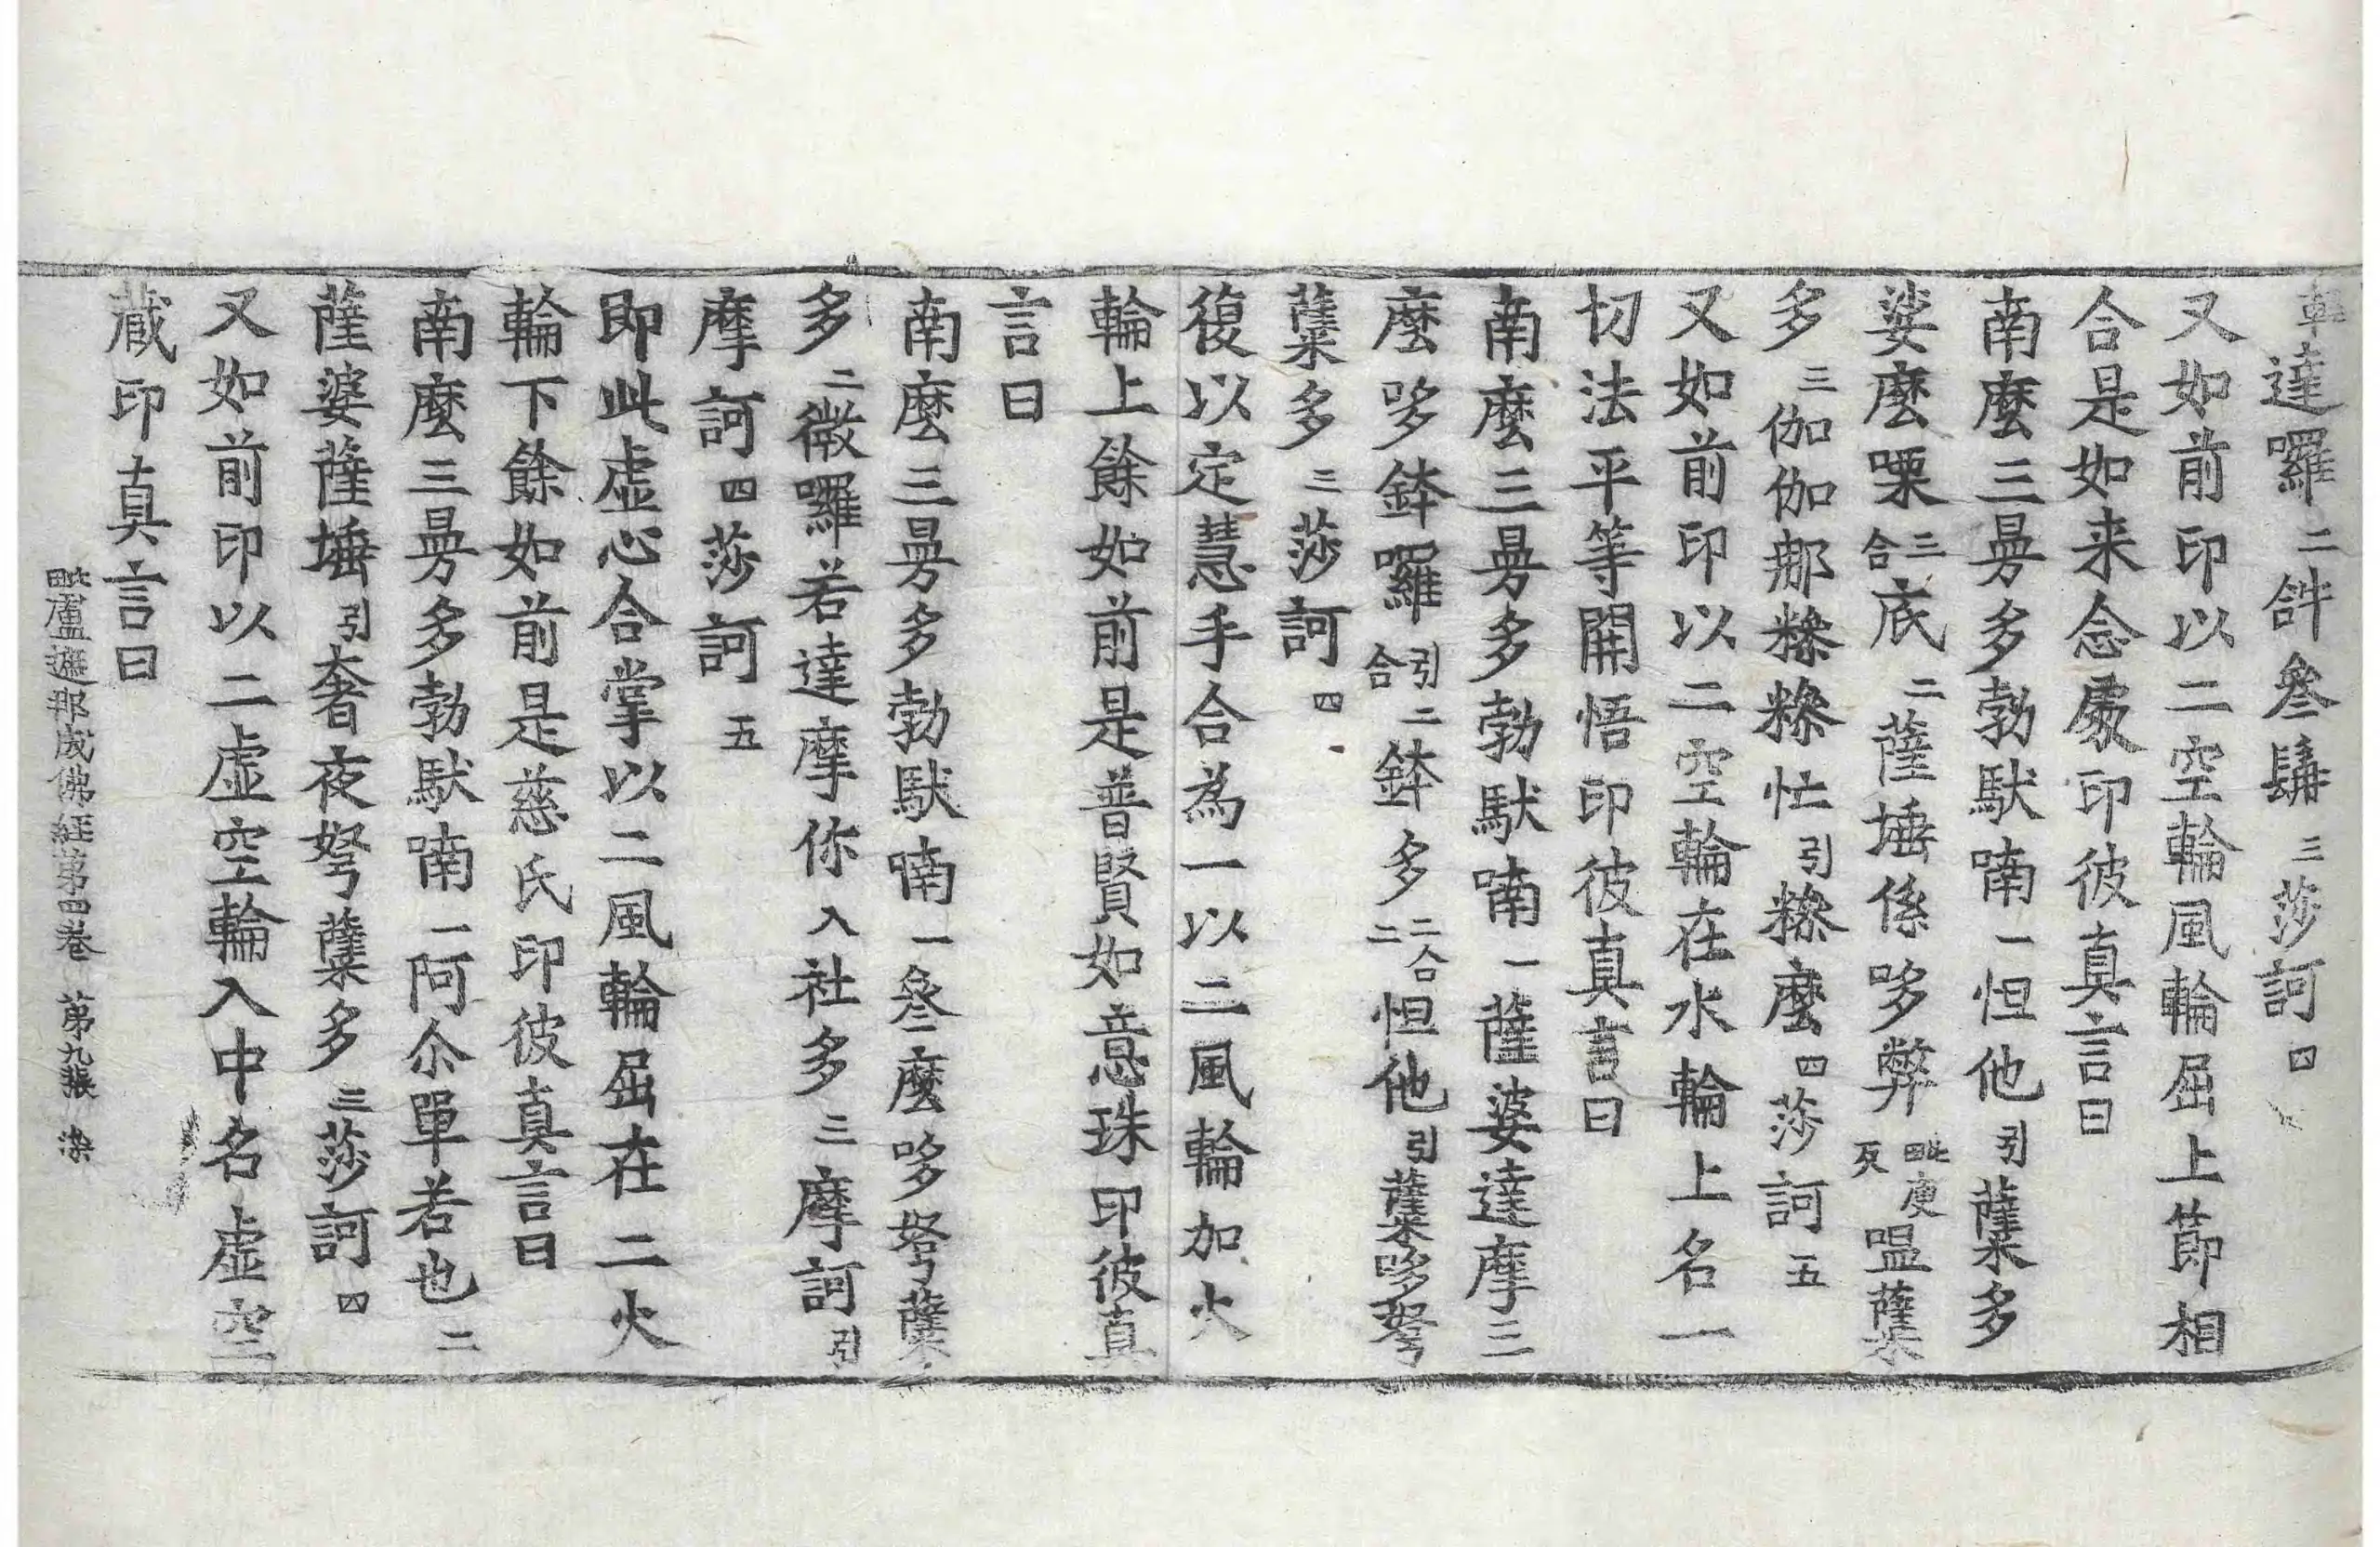 達囉二鉡參䭿三莎訶四
又如前印以二空輪風輪屈上節相
合是如来念處印彼真言曰
南麼三曼多勃馱喃一怛他引蘖多
娑麼㗚三合底二薩埵係哆弊毗庾反嗢蘖
多三伽伽那糝糝忙引糝麼四莎訶五
又如前印以二空輪在水輪上名一
切法平等開悟印彼真言曰
南麼三曼多勃馱喃一薩婆達摩三
麼哆鉢囉引二合鉢多二合二怛他引蘖哆弩
蘖多三莎訶四
復以定慧手合為一以二風輪加火
輪上餘如前是普賢如意珠印彼真
言曰
南麼三曼多勃馱喃一參麼哆弩蘖
多二微囉若達摩你入社多三摩訶引
摩訶四莎訶五
即此虚心合掌以二風輪屈在二火
輪下餘如前是慈氏印彼真言曰
南麼三曼多勃馱喃一阿尒單若也二
薩婆薩埵引奢夜弩蘖多三莎訶四
又如前印以二虚空輪入中名虚空
蔵印真言曰
毗盧遮那成佛経第四卷 第九張 染